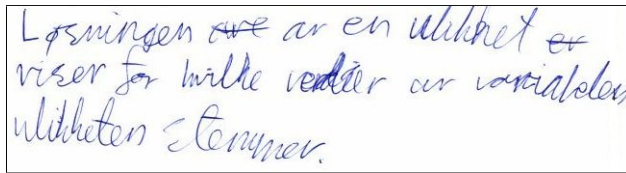 Løsningen ave av en ulikhet er
viser for hvilke verdier av variabelen
ulikheten stemmer.